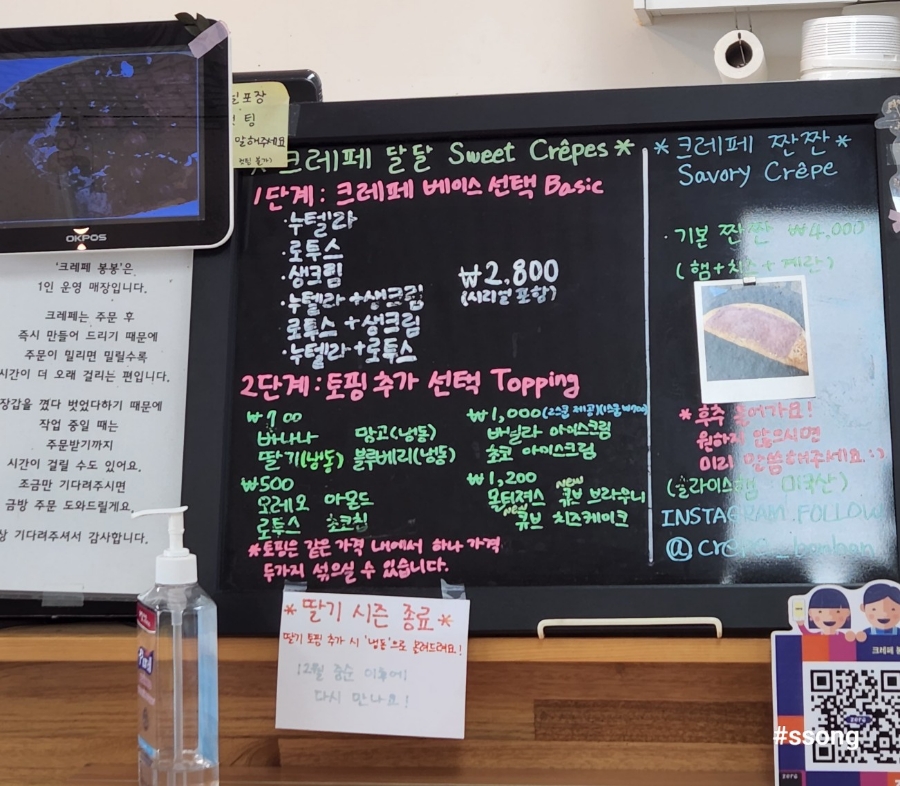 포장
팅
말해주세요
OKPOS
'크레페 봉봉'은
1인 운영 매장입니다.
크레페는 주문 후
즉시 만들어 드리기 때문에
주문이 밀리면 밀릴수록
시간이 더 오래 걸리는 편입니다.
장갑을 꼈다 벗었다하기 때문에
작업 중일 때는
주문받기까지
시간이 걸릴 수도 있어요.
조금만 기다려주시면
금방 주문 도와드릴게요.
상 기다려주셔서 감사합니다.
크레페 달달 Sweet Crêpes *
1단계 : 크레페 베이스 선택 Basic
·누텔라
·로투스
·생크림
·누텔라 + 생크림
로투스 + 생크림
·누텔라 + 로투스
₩2,800
(시리얼 포함)
2단계 : 토핑 추가 선택 Topping
₩700
바나나 망고(냉동)
딸기(냉동) 블루베리(냉동)
₩500
오레오 아몬드
로투스 초코칩
₩1,000 (2스쿱 제공)
바닐라 아이스크림
초코 아이스크림
₩1,200
new
몰티져스 큐브 브라우니
new
큐브 치즈케이크
*토핑은 같은 가격 내에서 하나 가격
두가지 섞으실 수 있습니다.
* 크레페 짠짠 *
Savory Crêpe
·기본 짠짠 ₩4,000
(햄+치즈+계란)
*후추 들어가요!
원하지 않으시면
미리 말씀해주세요 :)
(슬라이스햄 미국산)
INSTAGRAM FOLLOW
@crepe_bonbon
* 딸기 시즌 종료 *
딸기 토핑 추가 시 '냉동'으로 올려드려요!
12월 중순 이후에
다시 만나요!
Purell
크레페 봉
zero
zero
#ssong